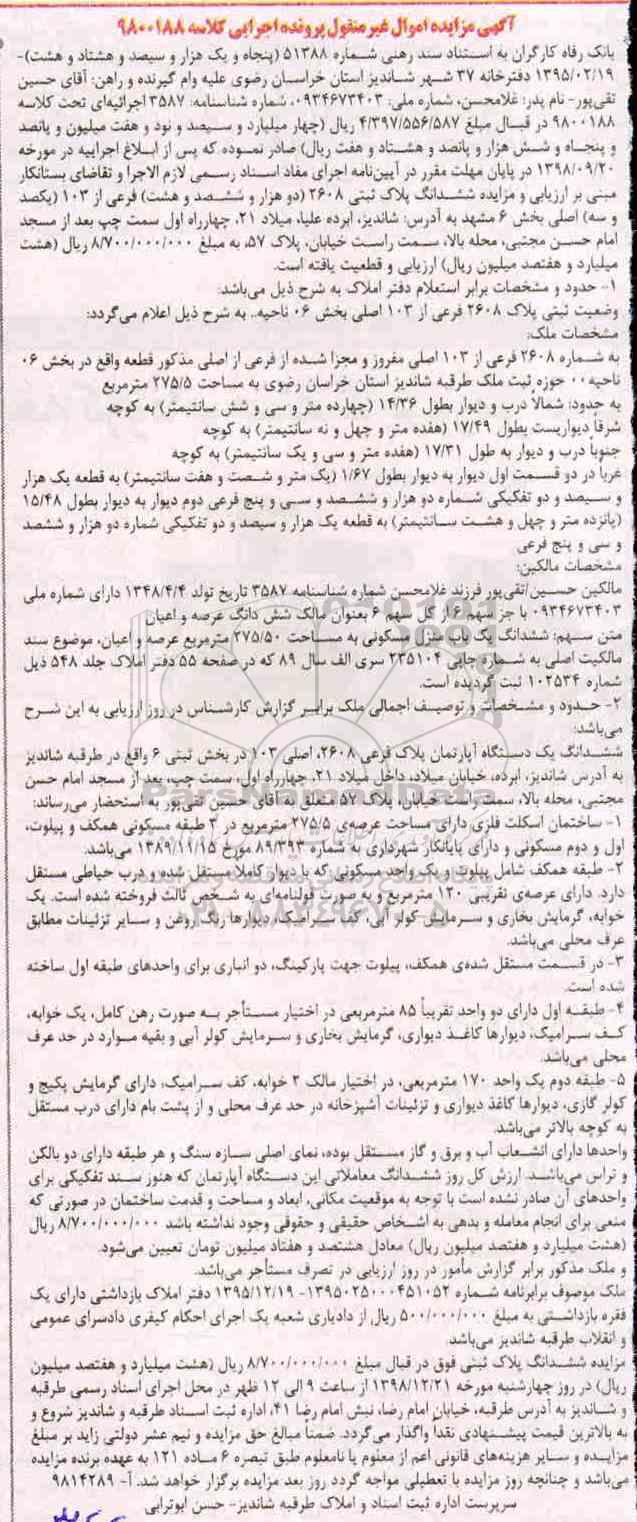 آگهی مزایده اموال غیرمنقول پرونده اجرایی کلاسه ۹۸۰۰۱۸۸
بانک رفاه کارگران به استناد سند رهنی شماره ۵۱۳۸۸ (پنجاه و یک هزار و سیصد و هشتاد و هشت)-
۱۳۹۵/۰۲/۱۹ دفترخانه ۳۷ شهر شاندیز استان خراسان رضوی علیه وام گیرنده و راهن: آقای حسین
تقی‌پور- نام پدر: غلامحسن، شماره ملی: ۰۹۳۴۶۷۳۴۰۳، شماره شناسنامه: ۳۵۸۷ اجرائیه‌ای تحت کلاسه
۹۸۰۰۱۸۸ در قبال مبلغ ۴/۳۹۷/۵۵۶/۵۸۷ ریال (چهار میلیارد و سیصد و نود و هفت میلیون و پانصد
و پنجاه و شش هزار و پانصد و هشتاد و هفت ریال) صادر نموده که پس از ابلاغ اجراییه در مورخه
۱۳۹۸/۰۹/۲۰ در پایان مهلت مقرر در آیین‌نامه اجرای مفاد اسناد رسمی لازم الاجرا و تقاضای بستانکار
مبنی بر ارزیابی و مزایده ششدانگ پلاک ثبتی ۲۶۰۸ (دو هزار و ششصد و هشت) فرعی از ۱۰۳ (یکصد
و سه) اصلی بخش ۶ مشهد به آدرس: شاندیز، ابرده علیا، میلاد ۲۱، چهارراه اول سمت چپ بعد از مسجد
امام حسن مجتبی، محله بالا، سمت راست خیابان، پلاک ۵۷، به مبلغ ۸/۷۰۰/۰۰۰/۰۰۰ ریال (هشت
میلیارد و هفتصد میلیون ریال) ارزیابی و قطعیت یافته است.
۱- حدود و مشخصات برابر استعلام دفتر املاک به شرح ذیل می‌باشد:
وضعیت ثبتی پلاک ۲۶۰۸ فرعی از ۱۰۳ اصلی بخش ۰۶ ناحیه.. به شرح ذیل اعلام می‌گردد:
مشخصات ملک:
به شماره ۲۶۰۸ فرعی از ۱۰۳ اصلی مفروز و مجزا شده از فرعی از اصلی مذکور قطعه واقع در بخش ۰۶
ناحیه۰۰ حوزه ثبت ملک طرقبه شاندیز استان خراسان رضوی به مساحت ۲۷۵/۵ مترمربع
به حدود: شمالا درب و دیوار بطول ۱۴/۳۶ (چهارده متر و سی و شش سانتیمتر) به کوچه
شرقاً دیواریست بطول ۱۷/۴۹ (هفده متر و چهل و نه سانتیمتر) به کوچه
جنوباً درب و دیوار به طول ۱۷/۳۱ (هفده متر و سی و یک سانتیمتر) به کوچه
غربا در دو قسمت اول دیوار به دیوار بطول ۱/۶۷ (یک متر و شصت و هفت سانتیمتر) به قطعه یک هزار
و سیصد و دو تفکیکی شماره دو هزار و ششصد و سی و پنج فرعی دوم دیوار به دیوار بطول ۱۵/۴۸
(پانزده متر و چهل و هشت سانتیمتر) به قطعه یک هزار و سیصد و دو تفکیکی شماره دو هزار و ششصد
و سی و پنج فرعی
مشخصات مالکین:
مالکین حسین/تقی‌پور فرزند غلامحسن شماره شناسنامه ۳۵۸۷ تاریخ تولد ۱۳۴۸/۴/۴ دارای شماره ملی
۰۹۳۴۶۷۳۴۰۳ با جز سهم ۶ از کل سهم ۶ بعنوان مالک شش دانگ عرصه و اعیان
متن سهم: ششدانگ یک باب منزل مسکونی به مساحت ۲۷۵/۵۰ مترمربع عرصه و اعیان، موضوع سند
مالکیت اصلی به شماره چاپی ۲۳۵۱۰۴ سری الف سال ۸۹ که در صفحه ۵۵ دفتر املاک جلد ۵۴۸ ذیل
شماره ۱۰۲۵۳۴ ثبت گردیده است.
۲- حدود و مشخصات و توصیف اجمالی ملک برابر گزارش کارشناس در روز ارزیابی به این شرح
می‌باشد:
ششدانگ یک دستگاه آپارتمان پلاک فرعی ۲۶۰۸، اصلی ۱۰۳ در بخش ثبتی ۶ واقع در طرقبه شاندیز
به آدرس شاندیز، ابرده، خیابان میلاد، داخل میلاد ۲۱، چهارراه اول، سمت چپ، بعد از مسجد امام حسن
مجتبی، محله بالا، سمت راست خیابان، پلاک ۵۷ متعلق به آقای حسین تقی‌پور به استحضار می‌رساند:
۱- ساختمان اسکلت فلزی دارای مساحت عرصه‌ی ۲۷۵/۵ مترمربع در ۳ طبقه مسکونی همکف و پیلوت،
اول و دوم مسکونی و دارای پایانکار شهرداری به شماره ۸۹/۳۹۳ مورخ ۱۳۸۹/۱۱/۱۵ می‌باشد.
۲- طبقه همکف شامل پیلوت و یک واحد مسکونی که با دیوار کاملا مستقل شده و درب حیاطی مستقل
دارد. دارای عرصه‌ی تقریبی ۱۲۰ مترمربع و به صورت قولنامه‌ای به شخص ثالث فروخته شده است. یک
خوابه، گرمایش بخاری و سرمایش کولر آبی، کف سرامیک، دیوارها رنگ روغن و سایر تزئینات مطابق
عرف محلی می‌باشد.
۳- در قسمت مستقل شده‌ی همکف، پیلوت جهت پارکینگ، دو انباری برای واحدهای طبقه اول ساخته
شده است.
۴- طبقه اول دارای دو واحد تقریباً ۸۵ مترمربعی در اختیار مستأجر به صورت رهن کامل، یک خوابه،
کف سرامیک، دیوارها کاغذ دیواری، گرمایش بخاری و سرمایش کولر آبی و بقیه موارد در حد عرف
محلی می‌باشد.
۵- طبقه دوم یک واحد ۱۷۰ مترمربعی، در اختیار مالک ۲ خوابه، کف سرامیک، دارای گرمایش پکیج و
کولر گازی، دیوارها کاغذ دیواری و تزئینات آشپزخانه در حد عرف محلی و از پشت بام دارای درب مستقل
به کوچه بالاتر می‌باشد.
واحدها دارای انشعاب آب و برق و گاز مستقل بوده، نمای اصلی سازه سنگ و هر طبقه دارای دو بالکن
و تراس می‌باشد. ارزش کل روز ششدانگ معاملاتی این دستگاه آپارتمان که هنوز سند تفکیکی برای
واحدهای آن صادر نشده است با توجه به موقعیت مکانی، ابعاد و مساحت و قدمت ساختمان در صورتی که
منعی برای انجام معامله و بدهی به اشخاص حقیقی و حقوقی وجود نداشته باشد ۸/۷۰۰/۰۰۰/۰۰۰ ریال
(هشت میلیارد و هفتصد میلیون ریال) معادل هشتصد و هفتاد میلیون تومان تعیین می‌شود.
و ملک مذکور برابر گزارش مأمور در روز ارزیابی در تصرف مستأجر می‌باشد.
ملک موصوف برابرنامه شماره ۱۳۹۵۰۲۵۰۰۰۴۵۱۰۵۲- ۱۳۹۵/۱۲/۱۹ دفتر املاک بازداشتی دارای یک
فقره بازداشتی به مبلغ ۵۰۰/۰۰۰/۰۰۰ ریال از دادیاری شعبه یک اجرای احکام کیفری دادسرای عمومی
و انقلاب طرقبه شاندیز می‌باشد.
مزایده ششدانگ پلاک ثبتی فوق در قبال مبلغ ۸/۷۰۰/۰۰۰/۰۰۰ ریال (هشت میلیارد و هفتصد میلیون
ریال) در روز چهارشنبه مورخه ۱۳۹۸/۱۲/۲۱ از ساعت ۹ الی ۱۲ ظهر در محل اجرای اسناد رسمی طرقبه
و شاندیز به آدرس طرقبه، خیابان امام رضا، نبش امام رضا ۴۱، اداره ثبت اسناد طرقبه و شاندیز شروع و
به بالاترین قیمت پیشنهادی نقداً واگذار می‌گردد. ضمنا مبالغ حق مزایده و نیم عشر دولتی زاید بر مبلغ
مزایده و سایر هزینه‌های قانونی اعم از معلوم یا نامعلوم طبق تبصره ۶ ماده ۱۲۱ به عهده برنده مزایده
می‌باشد و چنانچه روز مزایده با تعطیلی مواجه گردد روز بعد مزایده برگزار خواهد شد. آ- ۹۸۱۴۲۸۹
سرپرست اداره ثبت اسناد و املاک طرقبه شاندیز- حسن ابوترابی
ParsNamadData